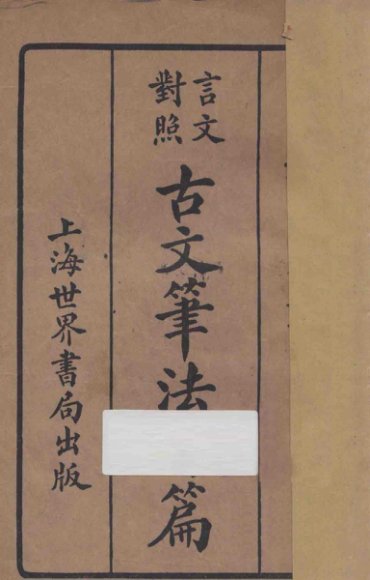 言文
對照
古文筆法篇
上海世界書局出版